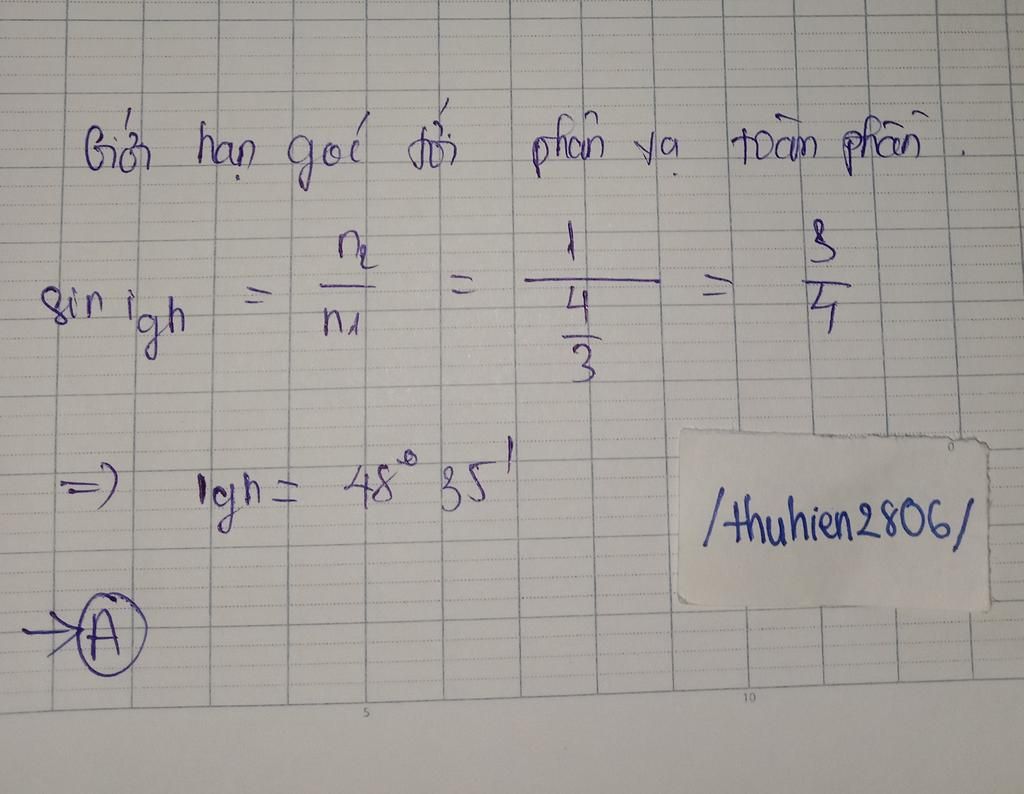 Giới hạn goć tới phản xạ toàn phần.
sin igh = n2/n1 = 1/(4/3) = 3/4
=> igh = 48° 35'
/thuhien2806/
→ A
5 10